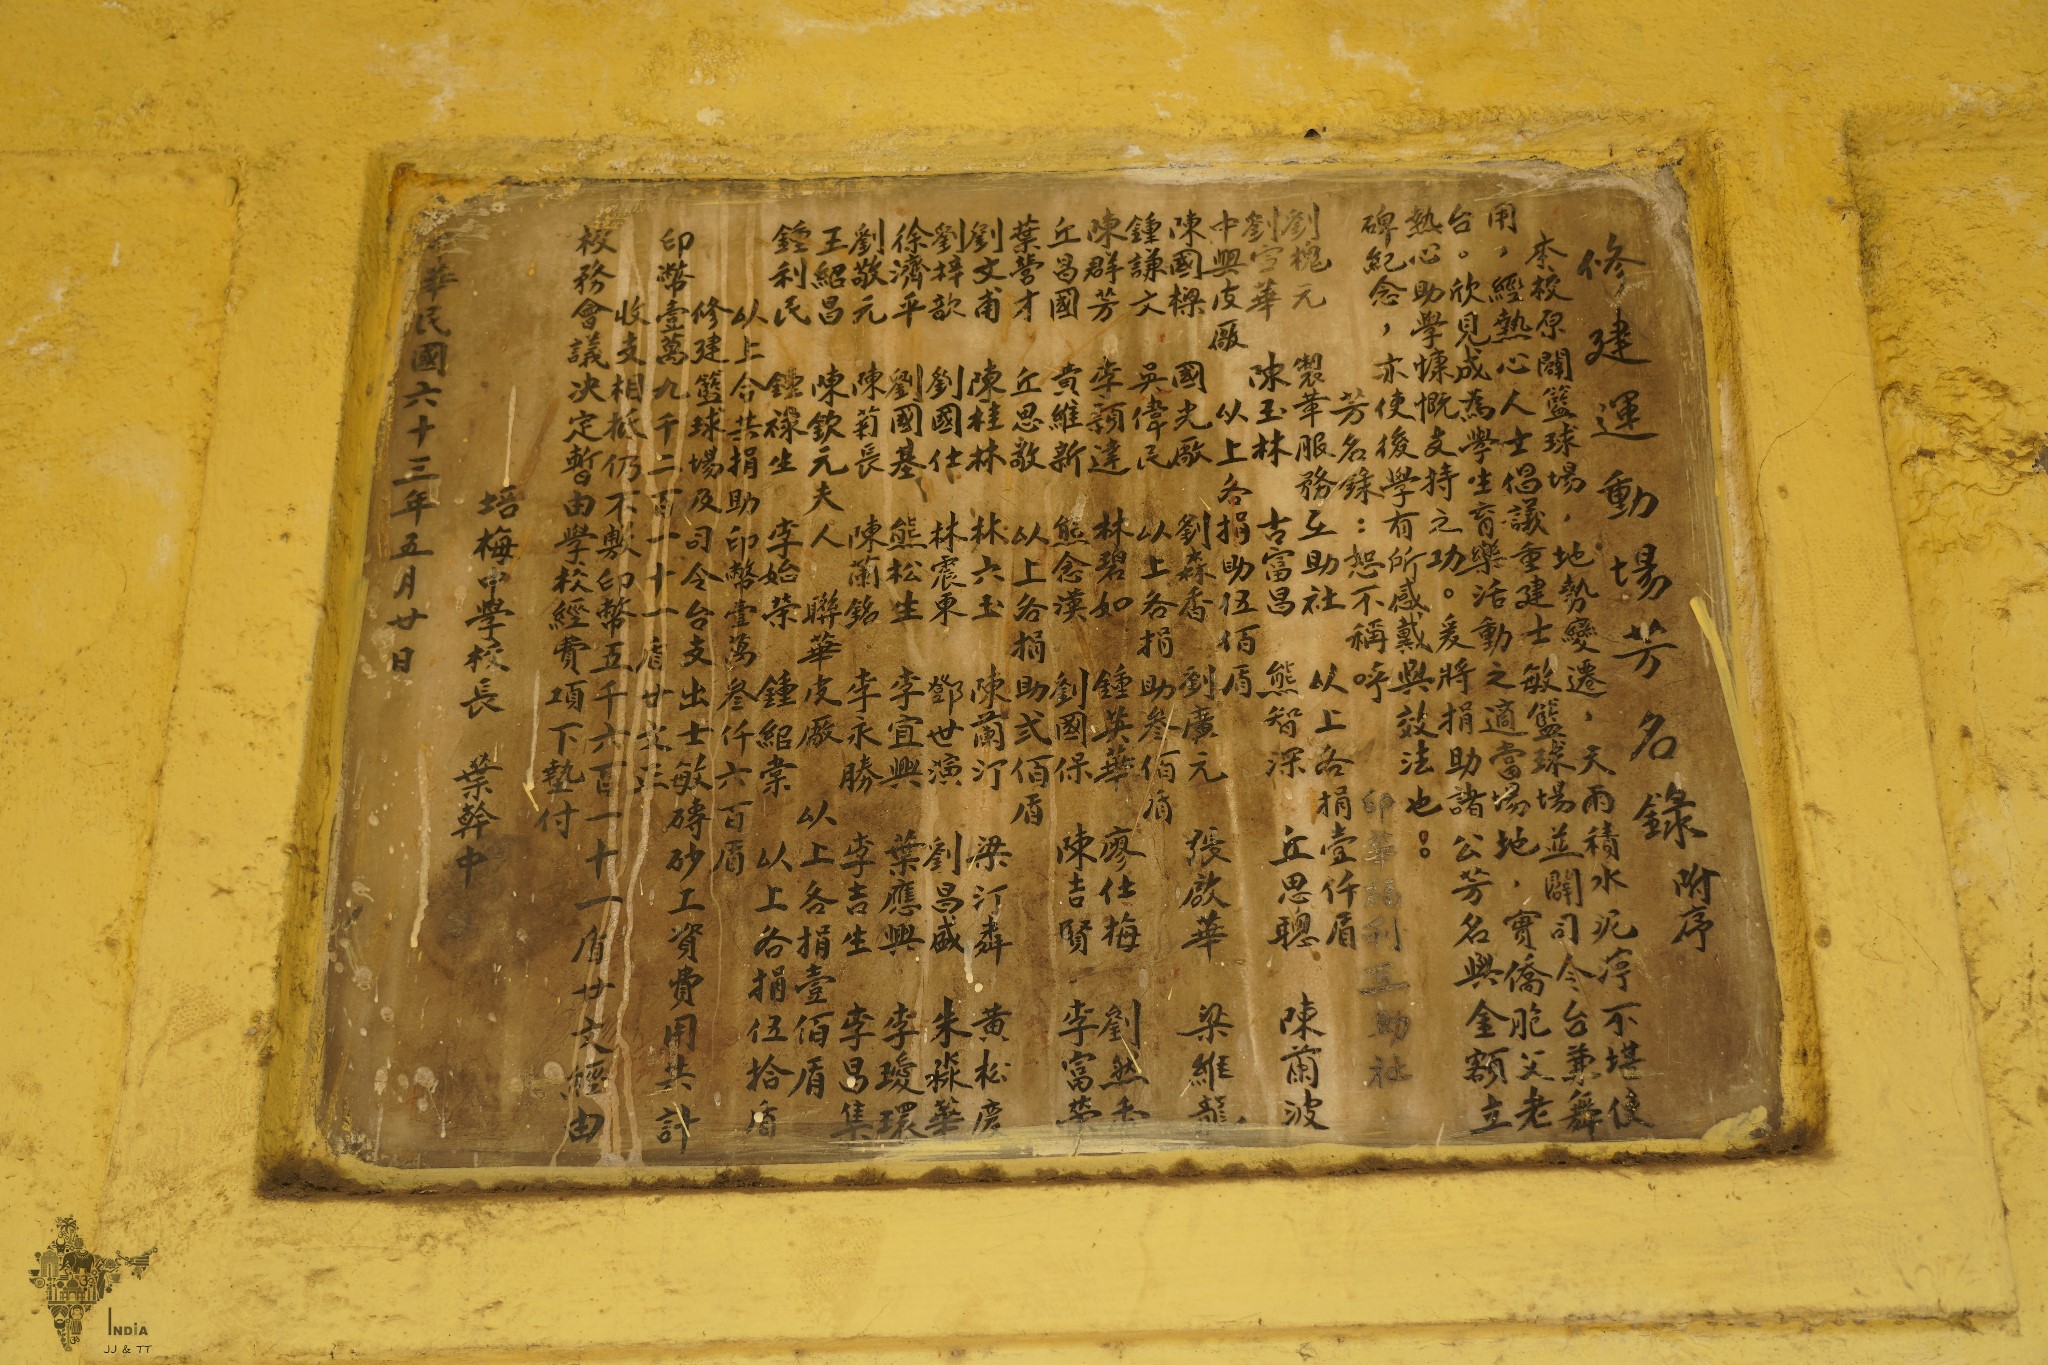 修建運動場芳名錄 附序
本校原闢籃球場，地勢變遷，天雨積水泥濘不堪使
用，經熱心人士倡議重建士敏籃球場並闢司令台兼舞
台。欣見成為學生育樂活動之適當場地，實僑胞父老
熱心助學慷慨支持之功。爰將捐助諸公芳名與金額立
碑紀念，亦使後學有所感戴與效法也。
芳名錄：恕不稱呼 印華福利互助社
劉槐元 製革服務互助社 以上各捐壹仟盾
劉宣華 陳玉林 古富昌 熊智深 丘思聰 陳蘭波
中興皮廠 以上各捐助伍佰盾
陳國樑 國光廠 劉森香 劉廣元 張啟華 梁維龍
鍾謙文 吳偉民 以上各捐助叁佰盾
陳群芳 李穎達 林碧如 鍾英華 廖仕梅 劉然香
丘昌國 黃維新 熊念漢 劉國保 陳吉賢 李富榮
葉營才 丘思敬 以上各捐助弍佰盾
劉文甫 陳桂林 林六玉 陳蘭汀 梁汀粦 黃松彦
劉梓歆 劉國仕 林震東 鄧世演 劉昌盛 朱淼華
徐濟平 劉國基 熊松生 李宜興 葉應興 李瓊環
劉敬元 陳菊長 陳蘭銘 李永勝 李吉生 李昌集
王紹昌 陳欽元夫人 聯華皮廠 以上各捐壹佰盾
鍾利民 鍾祿生 李始榮 鍾紹棠 以上各捐伍拾盾
以上合共捐助印幣壹萬叁仟六百盾
修建籃球場及司令台支出士敏磚砂工資費用共計
印幣壹萬九千二百一十一盾廿文正
收支相抵仍不敷印幣五千六百一十一盾廿文經由
校務會議決定暫由學校經費項下墊付
培梅中學校長 葉幹中
華民國六十三年五月廿日
INDIA
JJ & TT